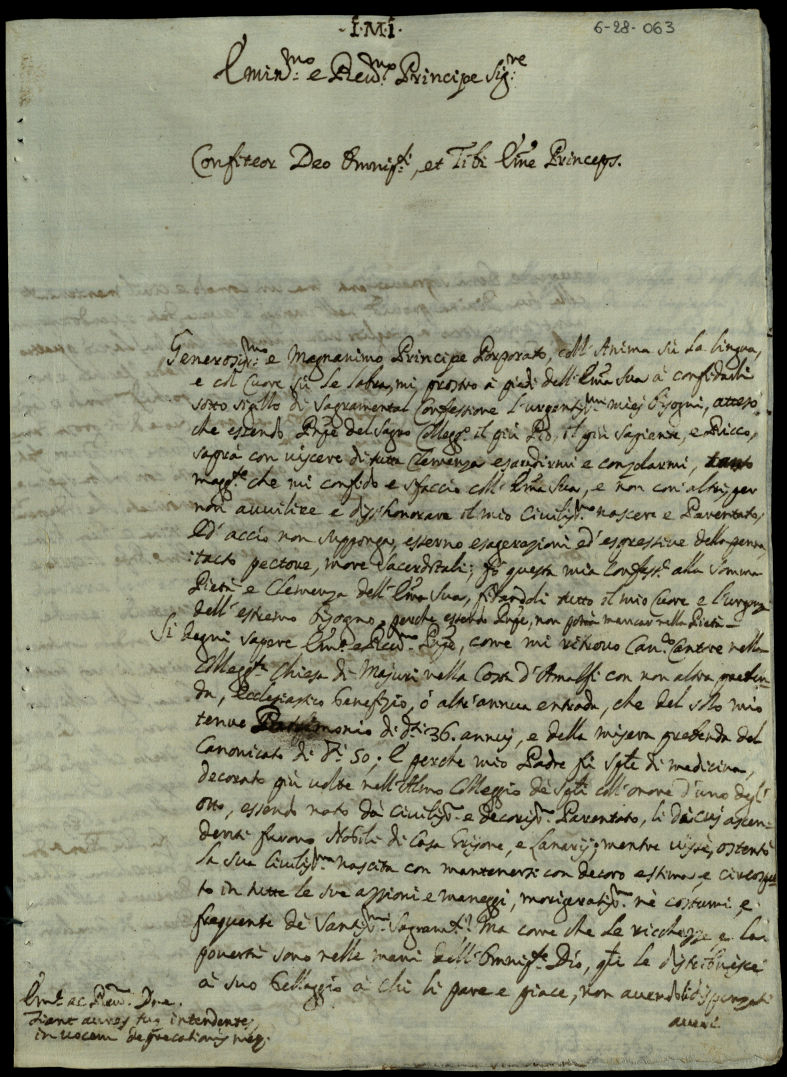 ·I·M·I·
6-28-063
Emin.mo e Rev.mo Principe Sig.re
Confiteor Deo Omnip.ti, et Tibi Em̃e Princeps.
Generosiss.mo e Magnanimo Principe Porporato, coll'Anima sù la lingua,
e col Cuore sù le labra, mi prostro à piedi dell'Em̃a Sua à confidarli
sotto sigillo di Sagramental Confessione l'urgentiss.mi miei bisogni, atteso
che essendo Prñpe del Sagro Collegg.o il più Pio, il più Sapiente, e Ricco,
saprà con viscere di tutta Clemenza esaudirmi e consolarmi, tanto
magg.te che mi confido e sfaccio coll'Em̃a Sua, e non con altri, per
non auuilire e dishonorare il mio Ciuiliss.mo nascere e Parentato,
Ed'acciò non supponga, esserno esagerazioni ed'espressive della penna
tacto pectore, more Sacerdotali; fò questa mia Confess.e alla Somma
Pietà e Clemenza dell'Em̃a Sua, fidandoli tutto il mio Cuore e l'urgenza
dell'estremo bisogno, perche essendo Prñpe, non potrà mancar nella Pietà
Si degni sapere Em̃o e Rev.mo Prñpe, come mi ritrovo Can.co Cantore nella
Collegg.ta Chiesa di Majuri nella Costa d'Amalfi con non altra preben-
da, Ecclesiastico benefizio, ò altr'annua entrada, che del solo mio
tenue Patrimonio di d.ti 36. annui, e della misera prebenda del
Canonicato di d.ti 50; E perche mio Padre fù di medicina,
decorato più volte nell'Almo Colleggio de coll'onore d'uno degl'
otto, essendo nato dà Ciuiliss.o e decoriss.o Parentato, li dà cui ascen-
denti furono Nobili di Casa Grisone, e mentre uisse, ostentò
la sua Ciuiliss.ma nascita con mantenersi con decoro estima, e circospet-
to in tutte le sue azzioni e maneggi, morigeratiss.o nè costumi, e
frequente dè Santiss.mi Sagram.ti; Ma come che le ricchezze e la
pouertà sono nelle mani dell'Omnip.te Dio, q.le le distribuisce
à suo bellaggio à chi li pare e piace, non auendoli dispenzati
aueri
Em̃e ac Rev.me Dñe.
Fiant aures tuę intendentes
in uocem deprecationis meę.